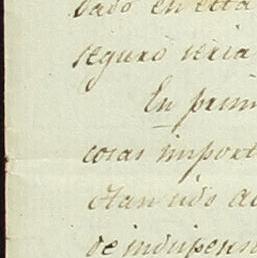 bado en esta
seguro seria
En prim
cosas import
otan sido a
de indispens